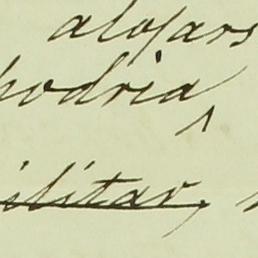 alojars
podria
ilitar,